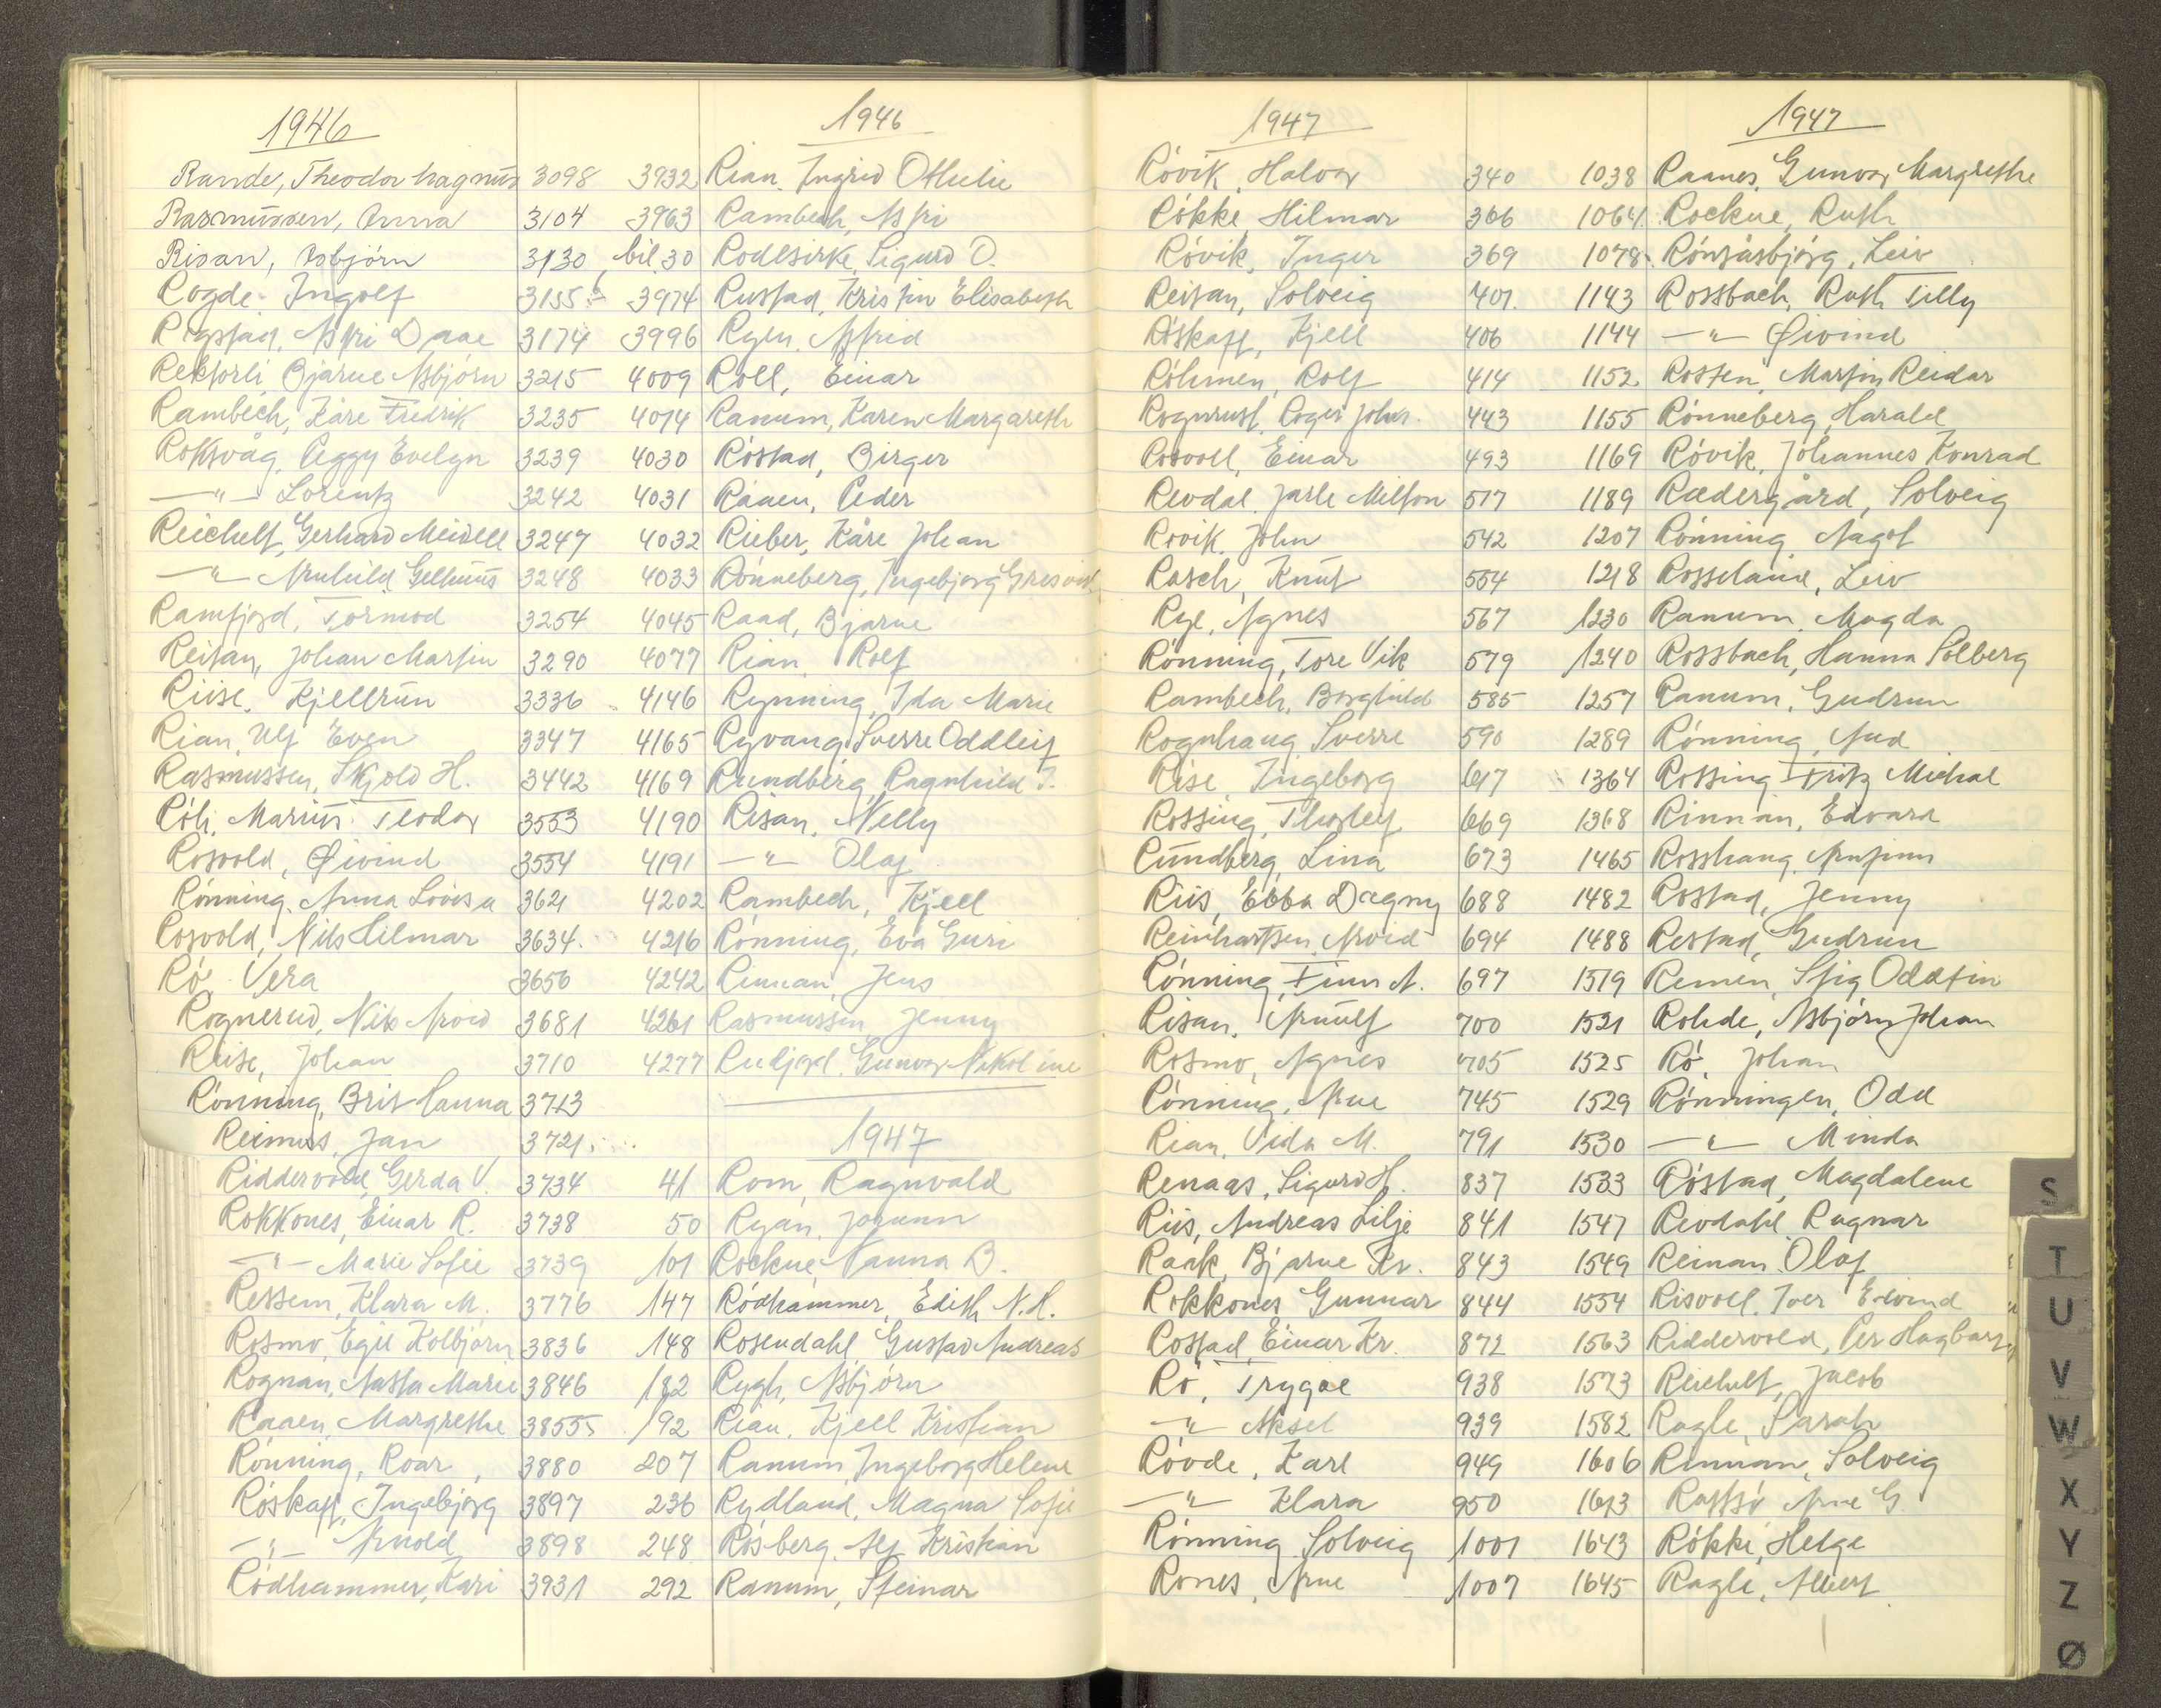 1946
Rande, Theodor Magnus 3098
Rasmussen, Anna 3104
Risan, Asbjørn 3130
Rogde, Ingolf 3155
Rogstad, Astri Daae 3174
Rektorli Bjarne Asbjørn 3215
Rambech, Kåre Fredrik 3235
Roksvåg, Peggy Evelyn 3239
—"— Lorentz 3242
Reichelt, Gerhard Meidell 3247
—"— Arnhild Gelhuus 3248
Ramfjord, Tormod 3254
Reitan, Johan Martin 3290
Riise, Kjellrun 3336
Rian, Ulf Even 3347
Rasmussen, Skjold H. 3442
Röh, Marius Teodor 3553
Rosvold, Øivind 3554
Rønning, Anna Lovisa 3621
Rosvold, Nils Hilmar 3634
Rø, Vera 3656
Rognerud, Nils Arvid 3681
Reise, Johan 3710
Rønning, Brit Hanna 3713
Reimers, Jan 3721
Riddervold, Gerda V. 3734
Rokkones, Einar R. 3738
—"— Marie Sofie 3739
Ressem, Klara M. 3776
Rosmo, Egil Kolbjørn 3836
Rognan, Nasta Marie 3846
Raaen, Margrethe 3855
Rønning, Roar 3880
Røskaft, Ingebjørg 3897
—"— Arnold 3898
Rødhammer, Kari 3931
1946
3932 Rian, Ingrid Othelie
3963 Rambech, Astri
bil. 30 Rodesirke, Sigurd O.
3974 Rustad, Kristin Elisabeth
3996 Rygen, Astrid
4009 Roll, Einar
4014 Ranum, Karen Margareth
4030 Røstad, Birger
4031 Raaen, Peder
4032 Rieber, Kåre Johan
4033 Rønneberg, Ingebjørg Gresvik
4045 Raad, Bjarne
4077 Rian, Rolf
4146 Rynning, Ida Marie
4165 Ryvang Sverre Oddleif
4169 Rundberg, Ragnhild T.
4190 Risan, Nelly
4191 —"— Olaf
4202 Rambech, Kjell
4216 Rønning, Eva Guri
4242 Rinnan, Jens
4261 Rasmussen, Jenny
4277 Rudjord, Gunvor Nikoline
1947
41 Rom, Ragnvald
50 Ryan, Jorunn
101 Rockne, Nanna B.
147 Rødhammer, Edith N. H.
148 Rosendahl Gustav Andreas
182 Rygh, Asbjørn
192 Rian, Kjell Kristian
207 Ranum, Ingeborg Helene
236 Rydland, Magna Sofie
248 Rosberg, Alf Kristian
292 Ranum, Steinar
1947
Røvik, Halvor 340
Røkke, Hilmar 366
Røvik, Inger 369
Reitan, Solveig 401
Røskaft, Kjell 406
Röhmen, Rolf 414
Rognrust, Roger Johs. 443
Rosvoll, Einar 493
Revdal, Jarle Milton 517
Rovik, John 542
Rasch, Knut 554
Rye, Agnes 567
Rønning, Tore Vik 579
Rambech, Borghild 585
Rognhaug Sverre 590
Rise, Ingeborg 617
Rossing, Thorleif 669
Rundberg, Lina 673
Riis, Ebba Dagny 688
Reinhartsen, Arvid 694
Rønning, Finn A. 697
Risan, Arnulf 700
Rosmo, Agnes 705
Rønning, Arne 745
Rian, Vida M. 791
Renaas, Sigurd H. 837
Riis, Andreas Lilje 841
Raak, Bjarne Kr. 843
Rokkones Gunnar 844
Rostad, Einar Kr. 872
Rø, Trygve 938
—"— Aksel 939
Røvde, Karl 949
—"— Klara 950
Rønning Solveig 1001
Rones, Arne 1007
1947
1038 Raanes, Gunvor Margrethe
1064 Rockne, Ruth
1078 Rønsåsbjørg, Leiv
1143 Rossbach, Ruth Tilly
1144 —"— Øivind
1152 Rosten, Martin Reidar
1155 Rønneberg, Harald
1169 Røvik, Johannes Konrad
1189 Rædergård, Solveig
1207 Rønning, Nagot
1218 Rosseland, Leiv
1230 Ranum, Magda
1240 Rossbach, Hanna Solberg
1257 Ranum, Gudrun
1289 Rønning, Aud
1364 Rossing Fritz Michal
1368 Rinnan, Edvard
1465 Rosshaug, Arnfinn
1482 Rostad, Jenny
1488 Restad, Gudrun
1519 Remen, Stig Oddfin
1521 Rohde, Asbjørn Johan
1525 Rø, Johan
1529 Rønningen, Odd
1530 —"— Minda
1533 Røstad, Magdalene
1547 Revdahl, Ragnar
1549 Reinan Olaf
1554 Risvoll, Iver Eivind
1563 Riddervold, Per Hagbart
1573 Reichelt, Jacob
1582 Ragle, Sarah
1606 Rinnan, Solveig
1613 Rotsø Arne G.
1643 Røkke, Helge
1645 Ragle, Albert
S
T
U
V
W
X
Y
Z
Ø